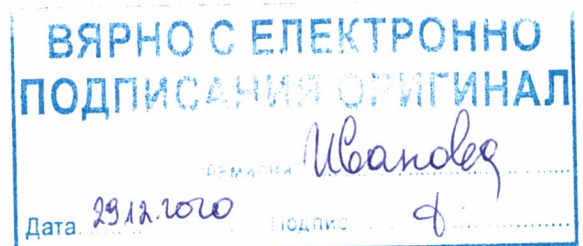 ВЯРНО С ЕЛЕКТРОННО
ПОДПИСАНИЯ ОРИГИНАЛ
Фамилия
Дата 29.12.2020 Подпис